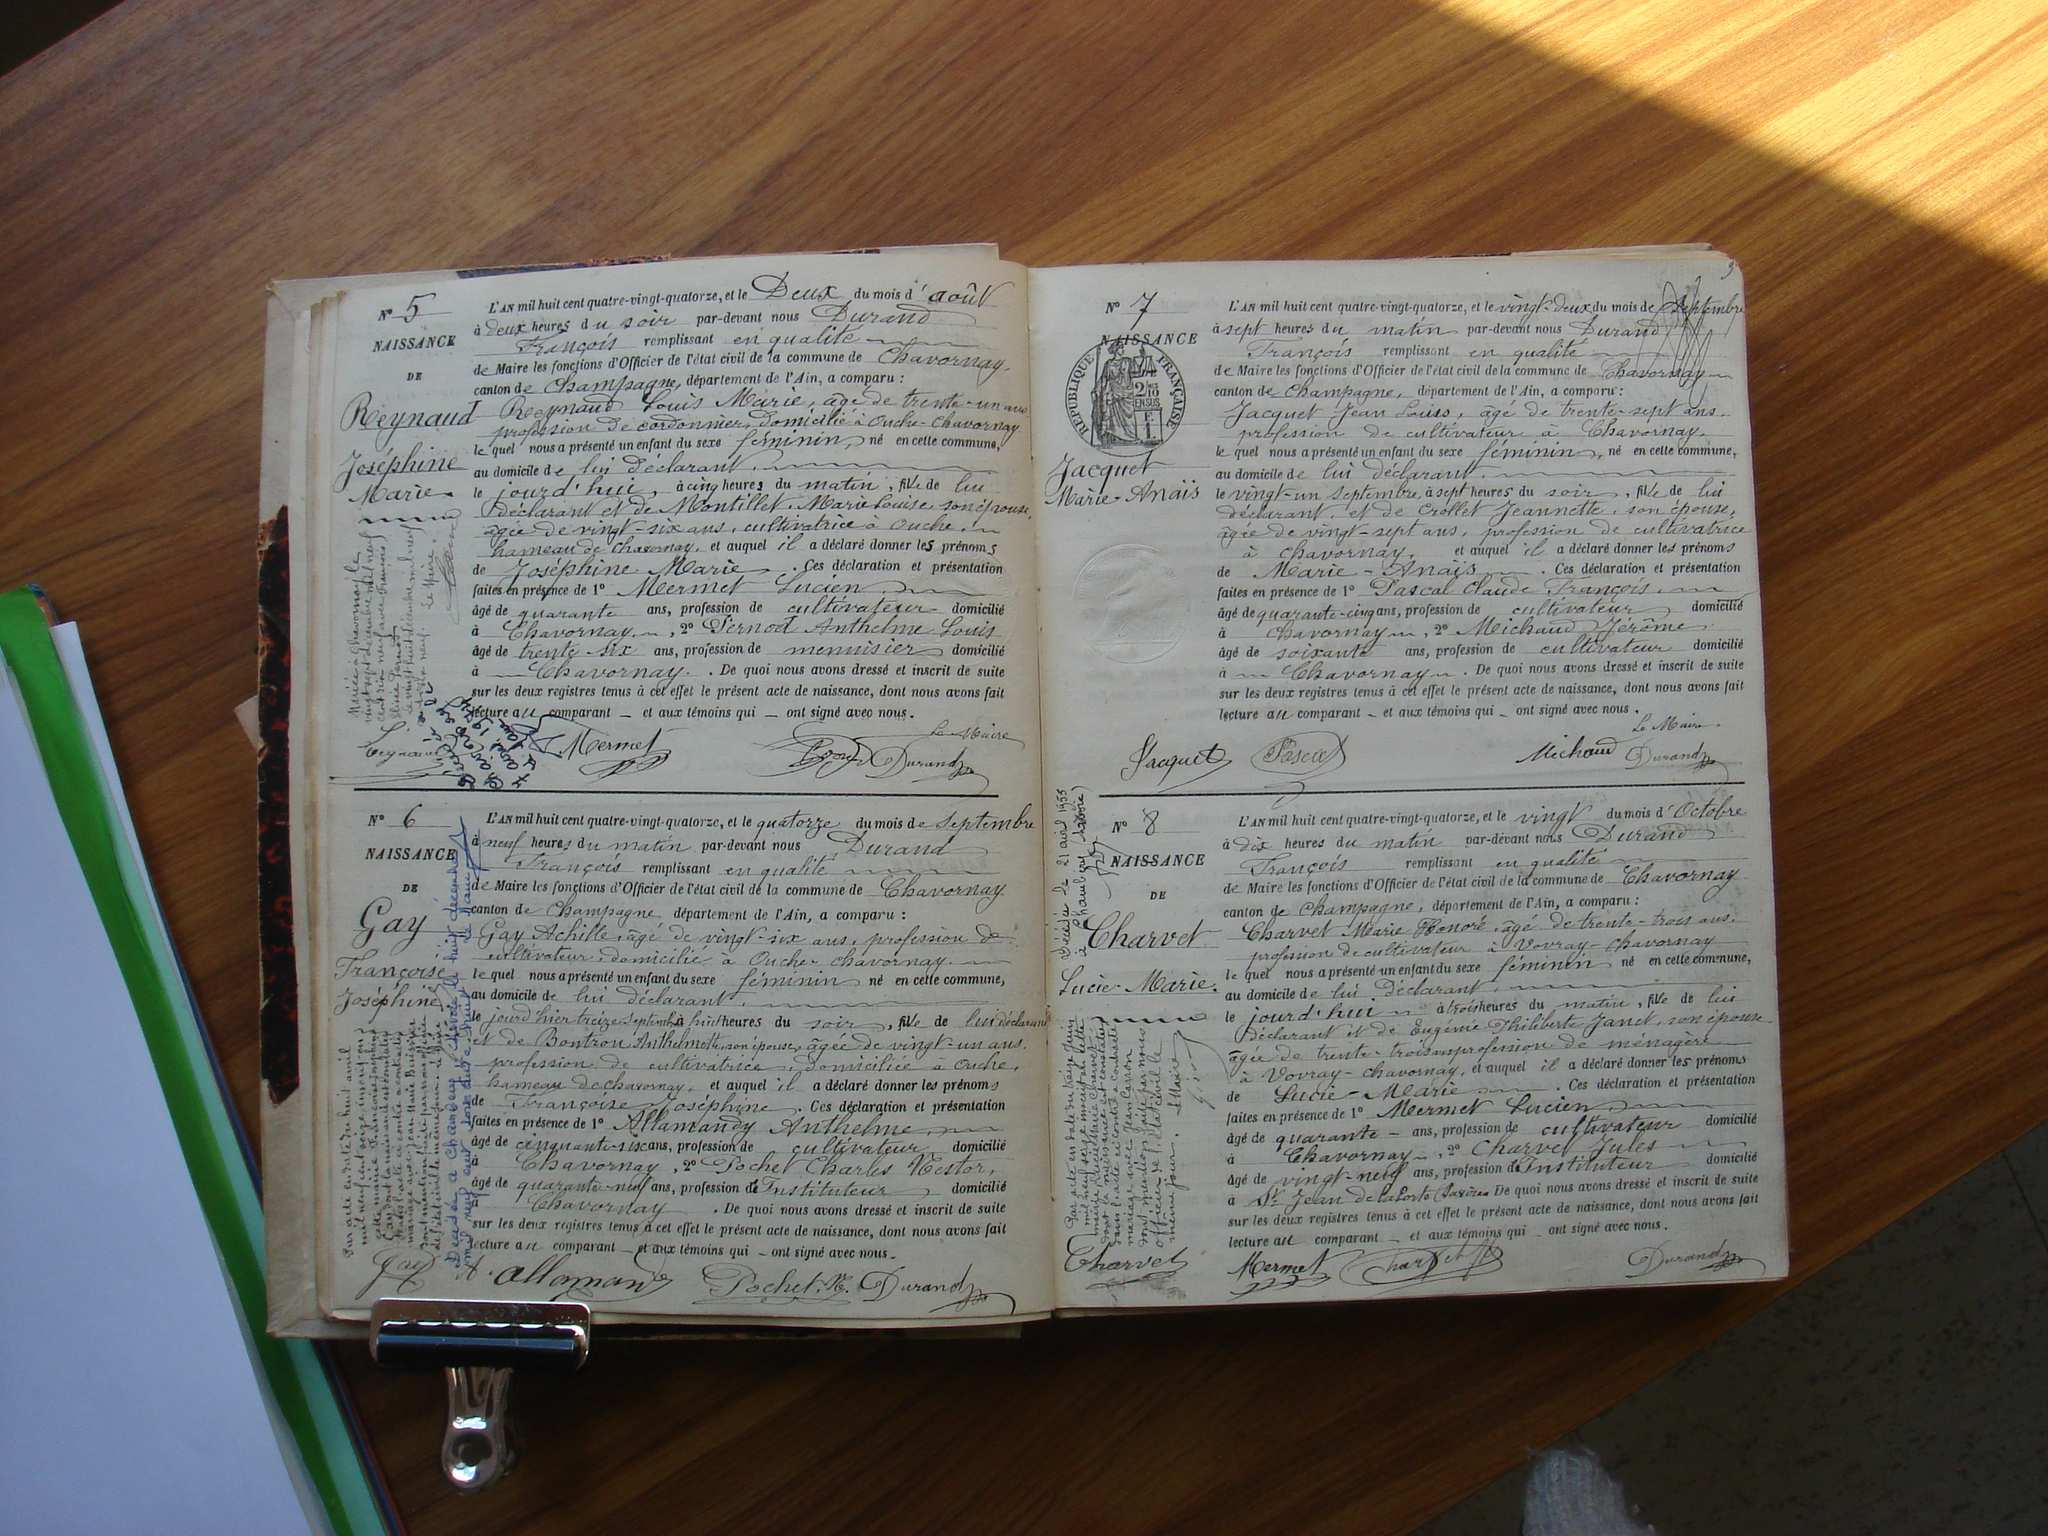 N° 5
NAISSANCE
DE
Reynaud
Joséphine
Marie
L'AN mil huit cent quatre-vingt-quatorze, et le Deux du mois d'août
à deux heures du soir par-devant nous Durand
François remplissant en qualité
de Maire les fonctions d'Officier de l'état civil de la commune de Chavornay,
canton de Champagne, département de l'Ain, a comparu :
Reynaud Louis Marie, âgé de trente-un ans
profession de cordonnier, domicilié à Ouche-Chavornay
le quel nous a présenté un enfant du sexe féminin, né en cette commune,
au domicile de lui déclarant.
le jourd'hui, à cinq heures du matin, fille de lui
déclarant et de Montillet Marie Louise, son épouse,
âgée de vingt-six ans, cultivatrice à Ouche,
hameau de Chavornay, et auquel il a déclaré donner les prénoms
de Joséphine Marie. Ces déclaration et présentation
faites en présence de 1° Mermet Lucien,
âgé de quarante ans, profession de cultivateur domicilié
à Chavornay, 2° Pernod Anthelme Louis
âgé de trente-six ans, profession de menuisier domicilié
à Chavornay. De quoi nous avons dressé et inscrit de suite
sur les deux registres tenus à cet effet le présent acte de naissance, dont nous avons fait
lecture au comparant et aux témoins qui ont signé avec nous.
Le Maire
Reynaud Mermet Durand
N° 6
NAISSANCE
DE
Gay
Françoise
Joséphine
L'AN mil huit cent quatre-vingt-quatorze, et le quatorze du mois de Septembre
à neuf heures du matin par-devant nous Durand
François remplissant en qualité
de Maire les fonctions d'Officier de l'état civil de la commune de Chavornay
canton de Champagne département de l'Ain, a comparu :
Gay Achille, âgé de vingt-six ans, profession de
cultivateur, domicilié à Ouche-Chavornay.
le quel nous a présenté un enfant du sexe féminin né en cette commune,
au domicile de lui déclarant.
le jourd'hier treize Septembre à huit heures du soir, fille de lui déclarant
et de Bontron Anthelmette, son épouse, âgée de vingt-un ans.
profession de cultivatrice, domiciliée à Ouche,
hameau de Chavornay, et auquel il a déclaré donner les prénoms
de Françoise Joséphine. Ces déclaration et présentation
faites en présence de 1° Allamandy Anthelme,
âgé de cinquante-six ans, profession de cultivateur domicilié
à Chavornay, 2° Pochet Charles Nestor,
âgé de quarante-neuf ans, profession d'Instituteur domicilié
à Chavornay. De quoi nous avons dressé et inscrit de suite
sur les deux registres tenus à cet effet le présent acte de naissance, dont nous avons fait
lecture au comparant et aux témoins qui ont signé avec nous.
Gay A. Allamand Pochet. N. Durand
3
N° 7
NAISSANCE
RÉPUBLIQUE FRANÇAISE
2/10 EN SUS
Jacquet
Marie-Anaïs
L'AN mil huit cent quatre-vingt-quatorze, et le vingt-deux du mois de Septembre
à sept heures du matin par-devant nous Durand
François remplissant en qualité
de Maire les fonctions d'Officier de l'état civil de la commune de Chavornay
canton de Champagne, département de l'Ain, a comparu :
Jacquet Jean Louis, âgé de trente-sept ans.
profession de cultivateur à Chavornay.
le quel nous a présenté un enfant du sexe féminin, né en cette commune,
au domicile de lui déclarant.
le vingt-un Septembre à sept heures du soir, fille de lui
déclarant et de Crollet Jeannette, son épouse,
âgée de vingt-sept ans, profession de cultivatrice
à Chavornay, et auquel il a déclaré donner les prénoms
de Marie-Anaïs. Ces déclaration et présentation
faites en présence de 1° Pascal Claude François,
âgé de quarante-cinq ans, profession de cultivateur domicilié
à Chavornay, 2° Michaud Jérôme
âgé de soixante ans, profession de cultivateur domicilié
à Chavornay. De quoi nous avons dressé et inscrit de suite
sur les deux registres tenus à cet effet le présent acte de naissance, dont nous avons fait
lecture au comparant et aux témoins qui ont signé avec nous.
Le Maire
Jacquet Pascal Michaud Durand
N° 8
NAISSANCE
DE
Charvet
Lucie-Marie
Décédée le 21 avril 1955
à Chambéry (Savoie)
L'AN mil huit cent quatre-vingt-quatorze, et le vingt du mois d'Octobre
à dix heures du matin par-devant nous Durand
François remplissant en qualité
de Maire les fonctions d'Officier de l'état civil de la commune de Chavornay
canton de Champagne, département de l'Ain, a comparu :
Charvet Marie Honoré, âgé de trente-trois ans.
profession de cultivateur à Vovray-Chavornay
le quel nous a présenté un enfant du sexe féminin né en cette commune,
au domicile de lui déclarant.
le jourd'hui à trois heures du matin, fille de lui
déclarant et de Eugénie Philiberte Janet, son épouse
âgée de trente-trois ans profession de ménagère
à Vovray-Chavornay, et auquel il a déclaré donner les prénoms
de Lucie-Marie. Ces déclaration et présentation
faites en présence de 1° Mermet Lucien,
âgé de quarante ans, profession de cultivateur domicilié
à Chavornay, 2° Charvet Jules
âgé de vingt-neuf ans, profession d'Instituteur domicilié
à St Jean de laporte De quoi nous avons dressé et inscrit de suite
sur les deux registres tenus à cet effet le présent acte de naissance, dont nous avons fait
lecture au comparant et aux témoins qui ont signé avec nous.
Charvet Mermet Charvet Durand